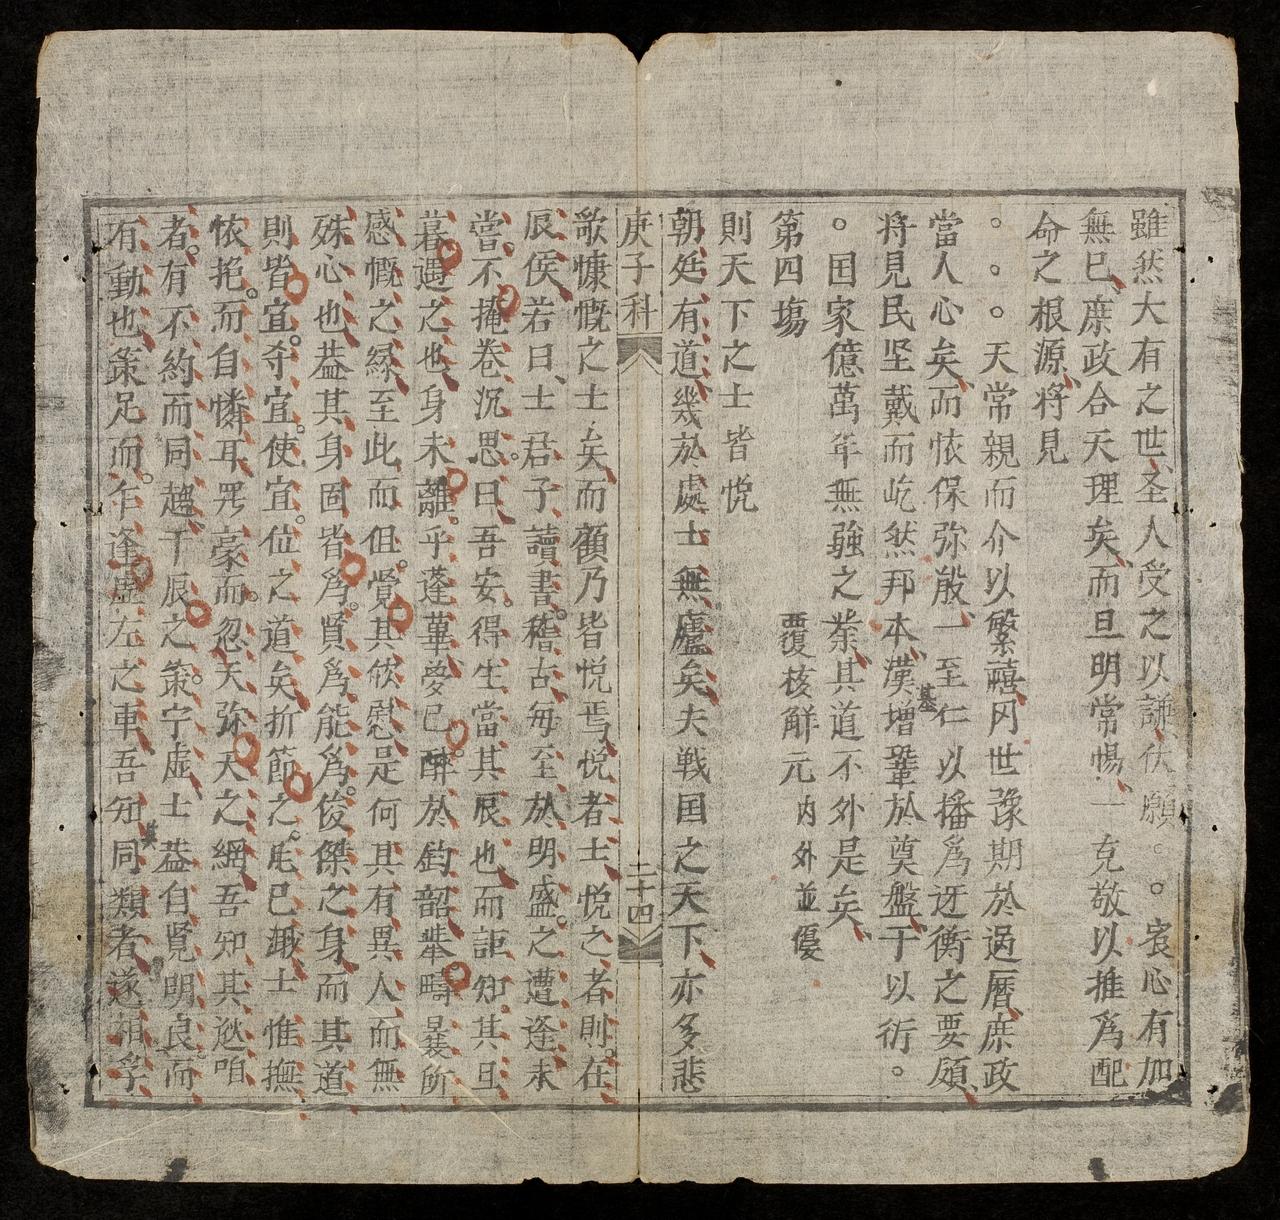 雖然大有之世圣人受之以謙伏願。。宸心有加
無已庶政合天理矣而旦明常惕一克敬以推爲配
命之根源将見
。。。天常親而介以繁禧冈世豫期於过曆庶政
當人心矣而恢保弥殷一至仁以播爲迓衡之要願
将見民坚戴而屹然邦本漢増鞏於奠盤于以衍。
。国家億萬年無強之業其道不外是矣
第四塲 覆核解元内外並優
則天下之士皆悦
朝廷有道幾於處士無廬矣夫戦国之天下亦多悲
庚子科 二十四
歌慷慨之士矣而顧乃皆悦焉悦者士悦之者則在
辰侯若曰士君子讀書稽古毎至於明盛之遭逢未
嘗不掩卷沉思曰吾安得生當其辰也而詎知其旦
暮遇之也身未離乎蓬蓽夢已酔於鈞韶輩疇曩所
感慨之縁至此而但覺其欣慰是何其有異人而無
殊心也葢其身固皆爲賢爲能爲俊傑之身而其道
則皆宜夺宜使宜位之道矣折節之尾已濈士惟撫
恢抱而自憐耳哭豪而忽天弥天之網吾知其逖咱
者有不約而同趨千辰之策宁虚士葢自覧明良而
有動也策足而乍逢虚左之車吾知其同類者遂相孚